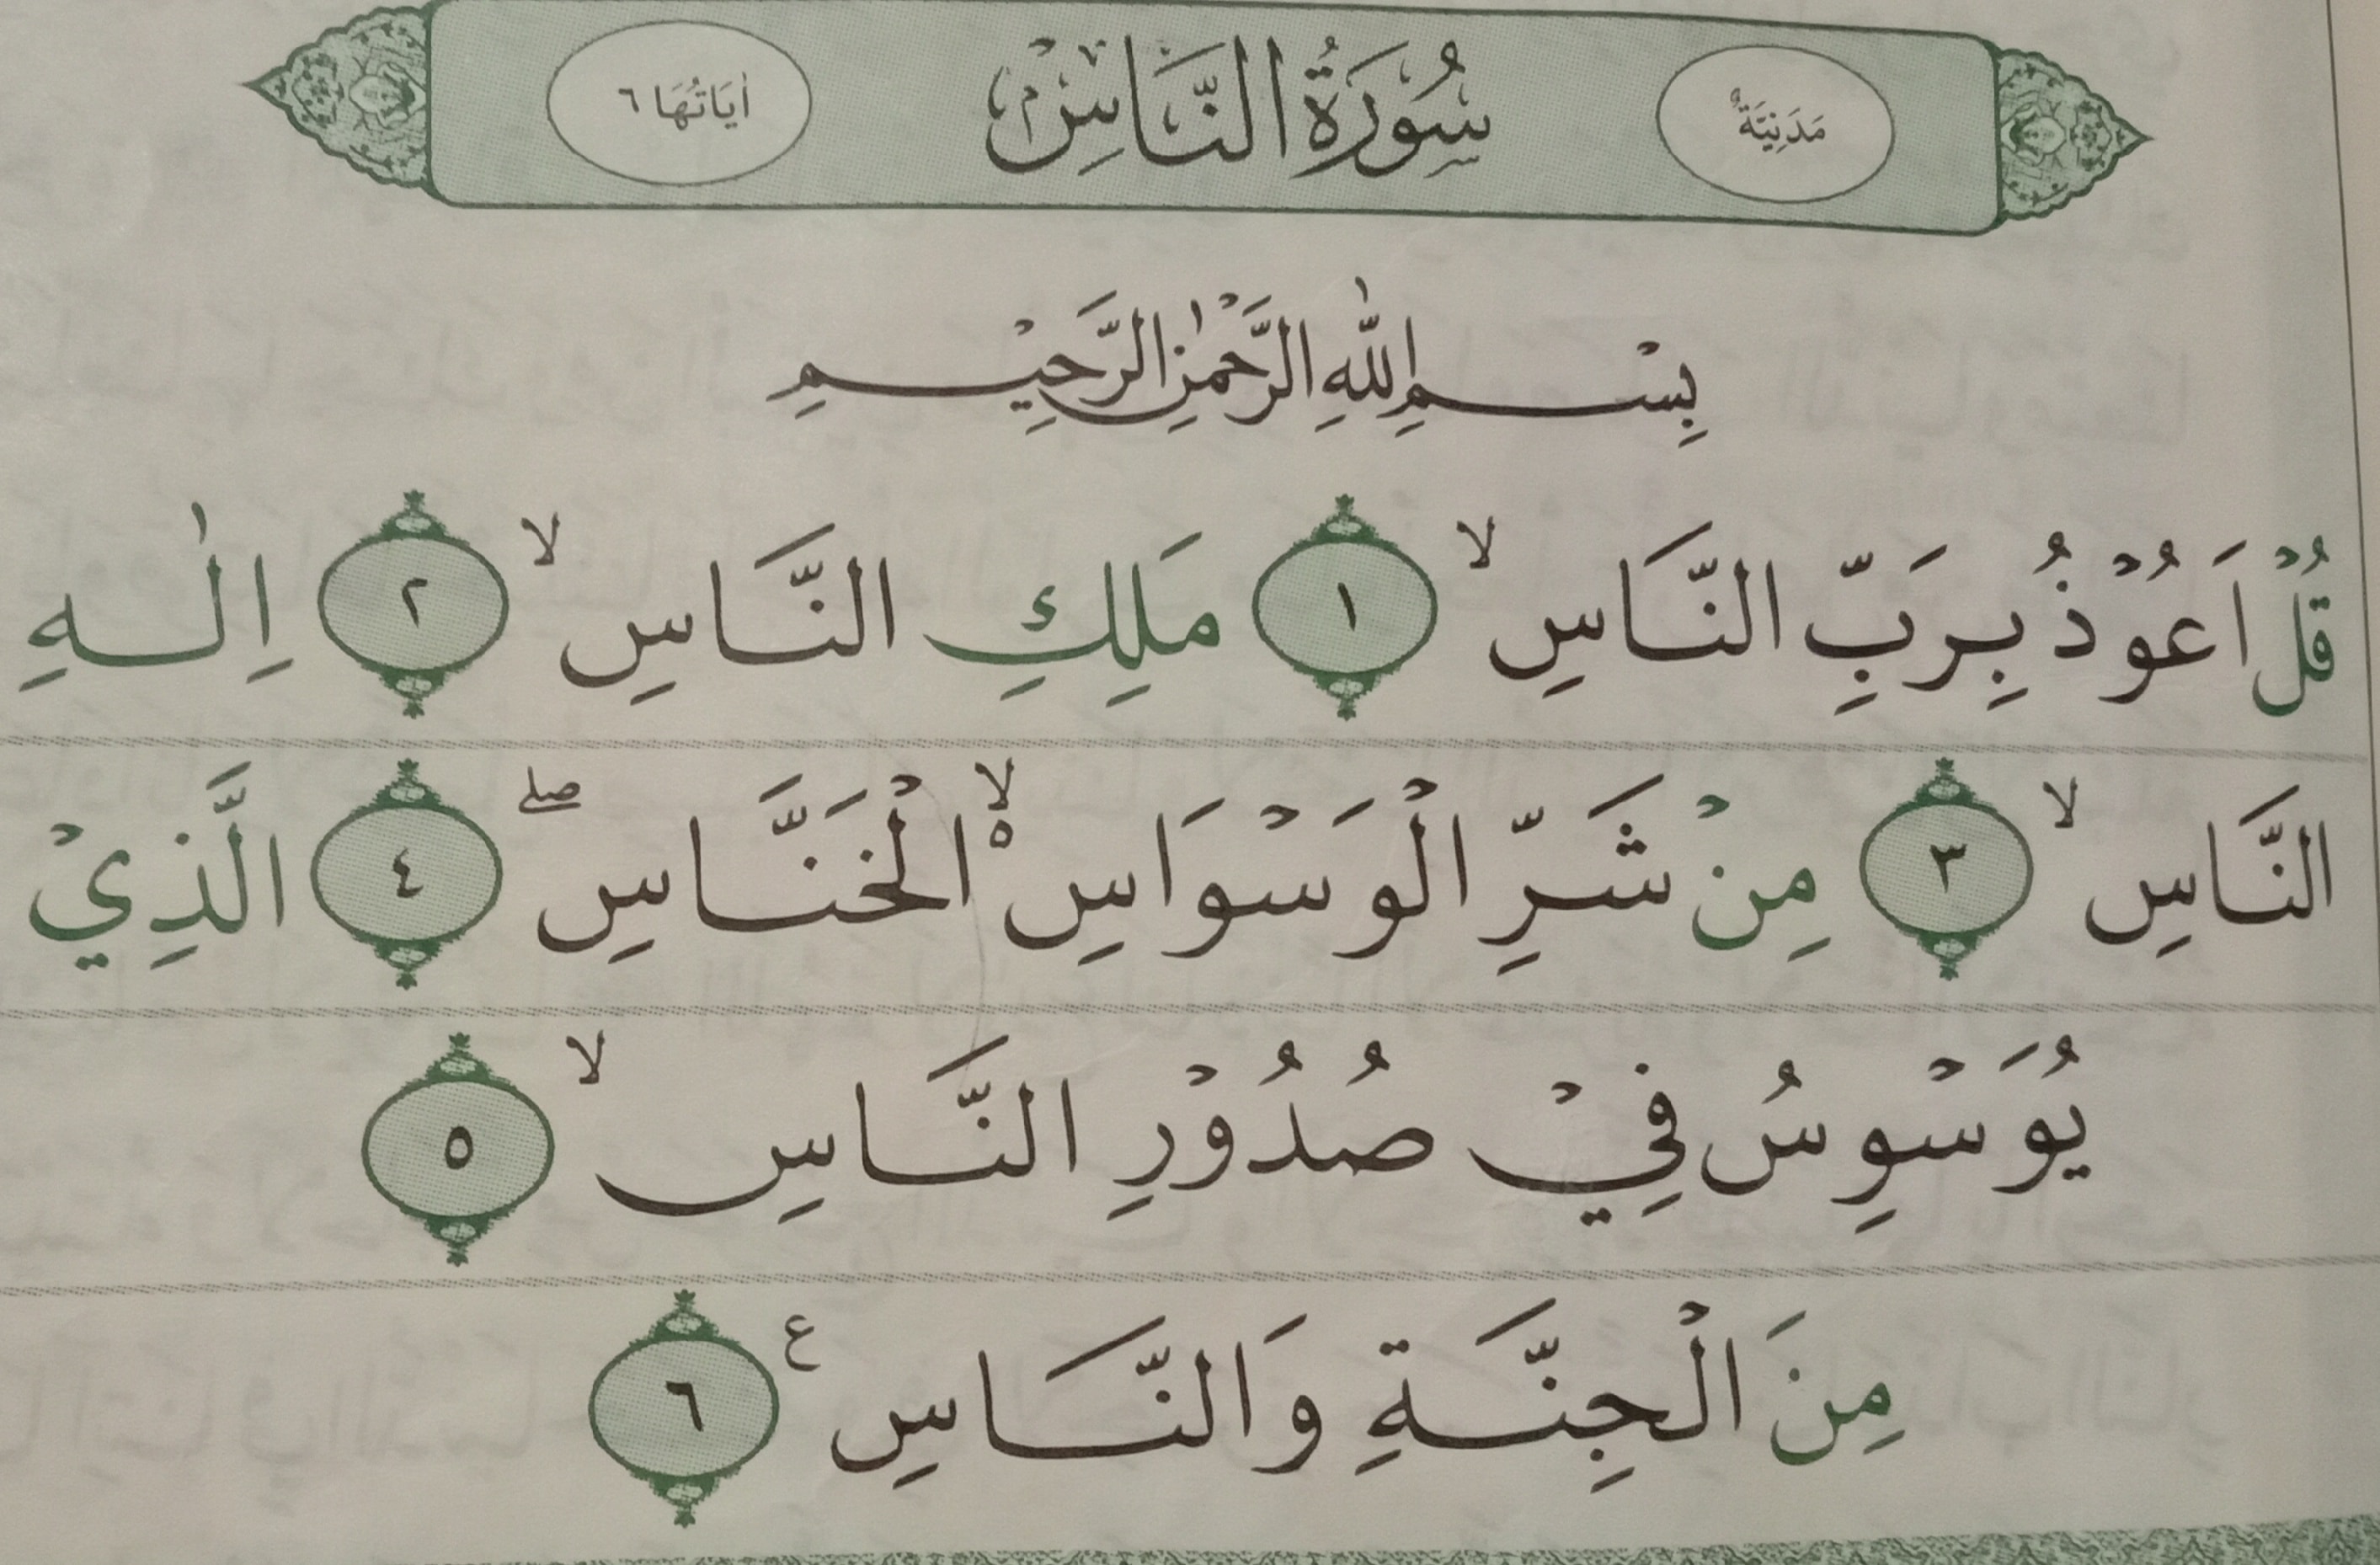 مَدَنِيَّةٌ سُوْرَةُ النَّاسِ اٰيَاتُهَا ٦
بِسْمِ اللّٰهِ الرَّحْمٰنِ الرَّحِيْمِ
قُلْ اَعُوْذُ بِرَبِّ النَّاسِ ۙ ١ مَلِكِ النَّاسِ ۙ ٢ اِلٰهِ
النَّاسِ ۙ ٣ مِنْ شَرِّ الْوَسْوَاسِ ەۙ الْخَنَّاسِ ۖ ٤ الَّذِيْ
يُوَسْوِسُ فِيْ صُدُوْرِ النَّاسِ ۙ ٥
مِنَ الْجِنَّةِ وَالنَّاسِ ع ٦